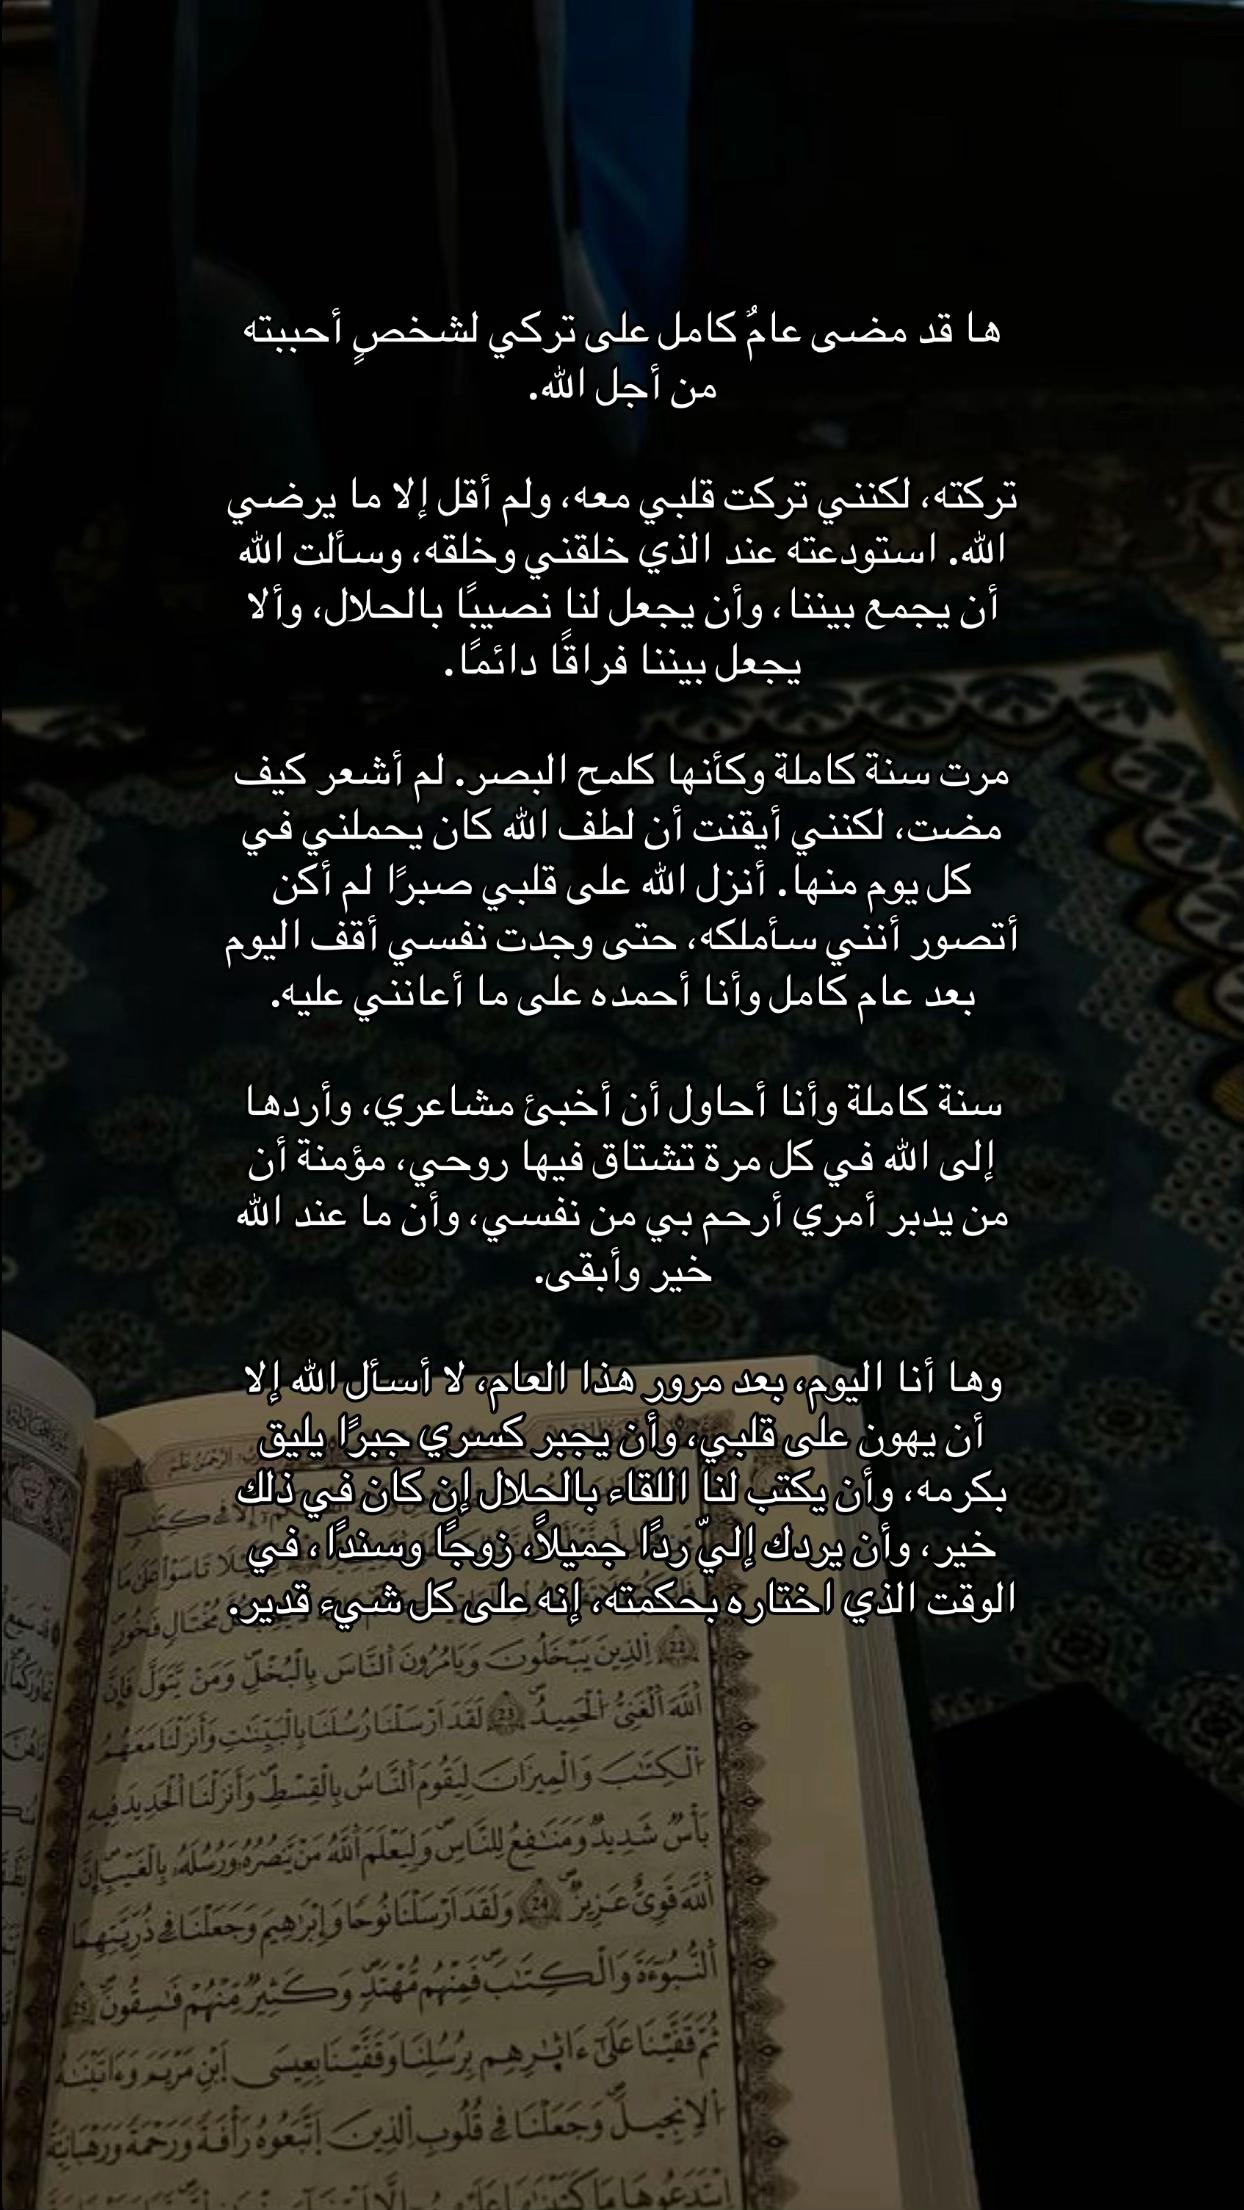 ها قد مضى عامٌ كامل على تركي لشخصٍ أحببته
من أجل الله.
تركته، لكنني تركت قلبي معه، ولم أقل إلا ما يرضي
الله. استودعته عند الذي خلقني وخلقه، وسألت الله
أن يجمع بيننا، وأن يجعل لنا نصيبًا بالحلال، وألا
يجعل بيننا فراقًا دائمًا.
مرت سنة كاملة وكأنها كلمح البصر. لم أشعر كيف
مضت، لكنني أيقنت أن لطف الله كان يحملني في
كل يوم منها. أنزل الله على قلبي صبرًا لم أكن
أتصور أنني سأملكه، حتى وجدت نفسي أقف اليوم
بعد عام كامل وأنا أحمده على ما أعانني عليه.
سنة كاملة وأنا أحاول أن أخبئ مشاعري، وأردها
إلى الله في كل مرة تشتاق فيها روحي، مؤمنة أن
من يدبر أمري أرحم بي من نفسي، وأن ما عند الله
خير وأبقى.
وها أنا اليوم، بعد مرور هذا العام، لا أسأل الله إلا
أن يهون على قلبي، وأن يجبر كسري جبرًا يليق
بكرمه، وأن يكتب لنا اللقاء بالحلال إن كان في ذلك
خير، وأن يردك إليّ ردًا جميلاً، زوجًا وسندًا، في
الوقت الذي اختاره بحكمته، إنه على كل شيء قدير.
22 اِ۬لذِينَ يَبْخَلُونَ وَيَامُرُونَ اَ۬لنَّاسَ بِالْبُخْلِ وَمَنْ يَّتَوَلَّ فَإِنَّ
اَ۬للَّهَ اَ۬لْغَنِيُّ اُ۬لْحَمِيدُ 23 لَقَدَ اَرْسَلْنَا رُسُلَنَا بِالْبَيِّنَٰتِ وَأَنزَلْنَا مَعَهُمُ
اُ۬لْكِتَٰبَ وَالْمِيزَانَ لِيَقُومَ اَ۬لنَّاسُ بِالْقِسْطِ وَأَنزَلْنَا اَ۬لْحَدِيدَ فِيهِ
بَأْسٞ شَدِيدٞ وَمَنَٰفِعُ لِلنَّاسِ وَلِيَعْلَمَ اَ۬للَّهُ مَنْ يَّنصُرُهُۥ وَرُسُلَهُۥ بِالْغَيْبِ إِنَّ
اَ۬للَّهَ قَوِيٌّ عَزِيزٞ 24 وَلَقَدَ اَرْسَلْنَا نُوحاٗ وَإِبْرَٰهِيمَ وَجَعَلْنَا فِي ذُرِّيَّتِهِمَا
اَ۬لنُّبُوٓءَةَ وَالْكِتَٰبَ فَمِنْهُم مُّهْتَدٖ وَكَثِيرٞ مِّنْهُمْ فَٰسِقُونَ 25
ثُمَّ قَفَّيْنَا عَلَىٰٓ ءَاثٰ۪رِهِم بِرُسُلِنَا وَقَفَّيْنَا بِعِيسَى اَ۪بْنِ مَرْيَمَ وَءَاتَيْنَٰهُ
اُ۬لِانجِيلَ وَجَعَلْنَا فِي قُلُوبِ اِ۬لذِينَ اَ۪تَّبَعُوهُ رَأْفَةٗ وَرَحْمَةٗ وَرَهْبَانِيَّةً